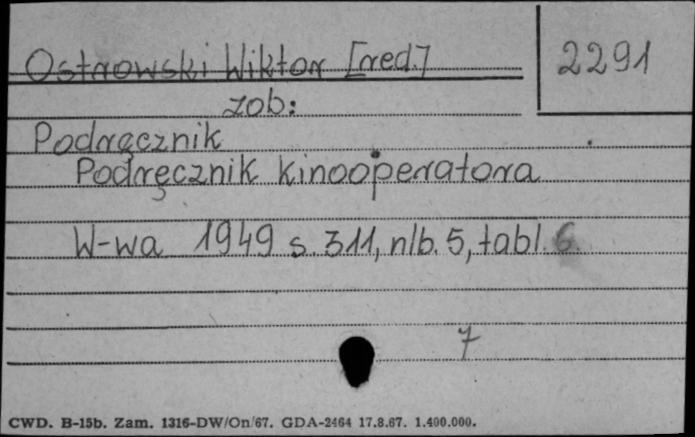 Ostrowski Wiktor [red.]
2291
zob:
Podręcznik
Podręcznik kinooperatora
W-wa 1949 s. 311, nlb. 5, tabl. 6
7
CWD. B-15b. Zam. 1316-DW/On/67. GDA-2464 17.8.67. 1.400.000.